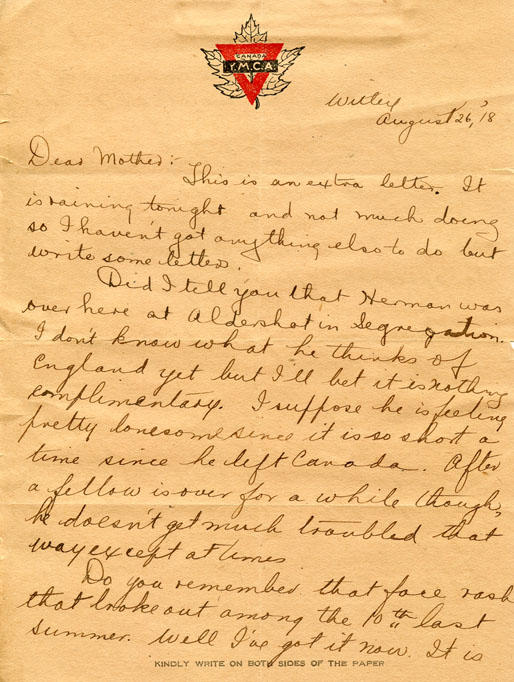 CANADA
Y.M.C.A.
Witley
August 26, '18
Dear Mother:-
This is an extra letter. It
is raining tonight and not much doing
so I haven't got anything else to do but
write some letters.
Did I tell you that Herman was
over here at Aldershot in Segregation.
I don't know what he thinks of
England yet but I'll bet it is nothing
complimentary. I suppose he is feeling
pretty lonesome since it is so short a
time since he left Canada. After
a fellow is over for a while though,
he doesn't get much troubled that
way except at times
Do you remember that face rash
that broke out among the 10th last
summer. Well I've got it now. It is
KINDLY WRITE ON BOTH SIDES OF THE PAPER